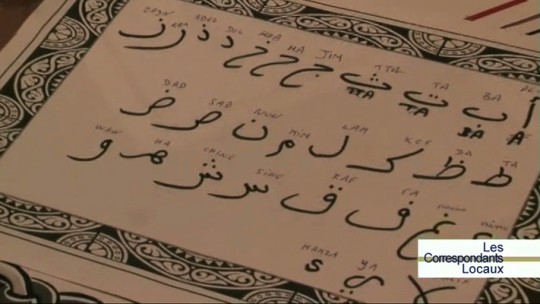 BA TA TTA JIM HA DEL ZAYN
أ ب ت ث ج ح خ د ذ ر ز
BA TA TTA
TA DA KEF LAM MIM NUN SAD DAD
ط ظ ك ل م ن ص ض
FA KAF SINE CHINE HA WAW
غ ف ق س ش ه و
YA HAMZA
ي ء
Les
Correspondants
Locaux